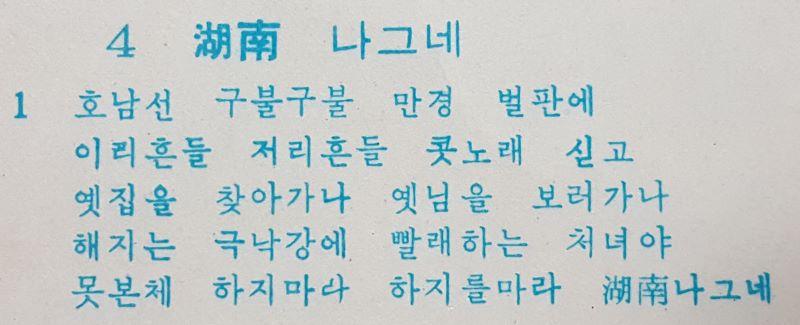 4 湖南 나그네
1 호남선 구불구불 만경 벌판에
이리흔들 저리흔들 콧노래 싣고
옛집을 찾아가나 옛님을 보러가나
해지는 극낙강에 빨래하는 처녀야
못본체 하지마라 하지를마라 湖南나그네